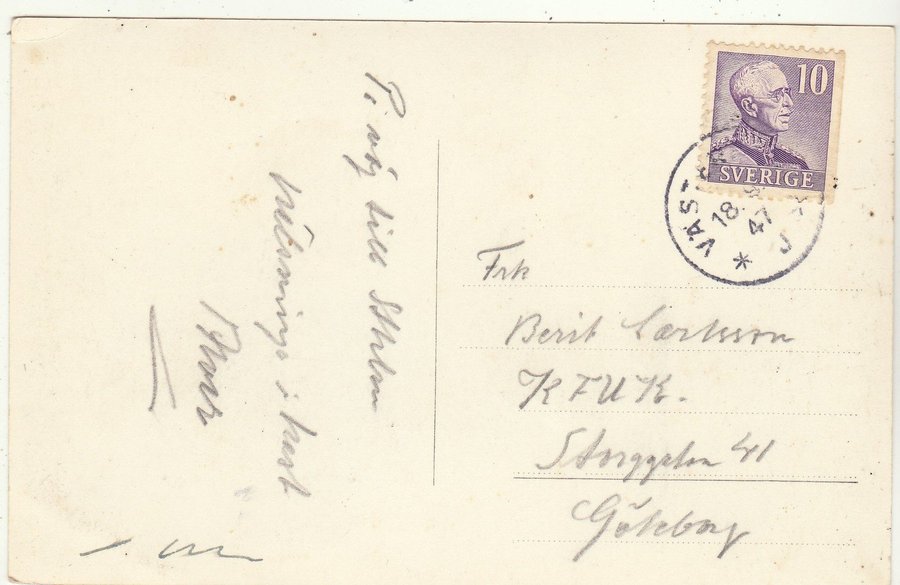 På väg till Sthlm
Hälsningar i hast
10
SVERIGE
VÄS
18
47
Frk
Berit Carlsson
KFUK.
Storgatan 41
Göteborg